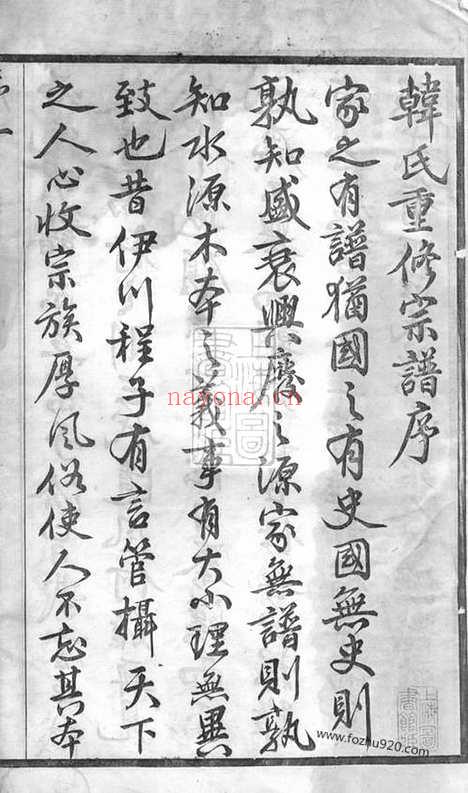 韓氏重修宗譜序
家之有譜猶國之有史國無史則
孰知盛衰興廢之源家無譜則孰
知水源木本之義事有大小理無異
致也昔伊川程子有言管攝天下
之人心收宗族厚風俗使人不忘其本
nayona.cn
www.fozhu920.com